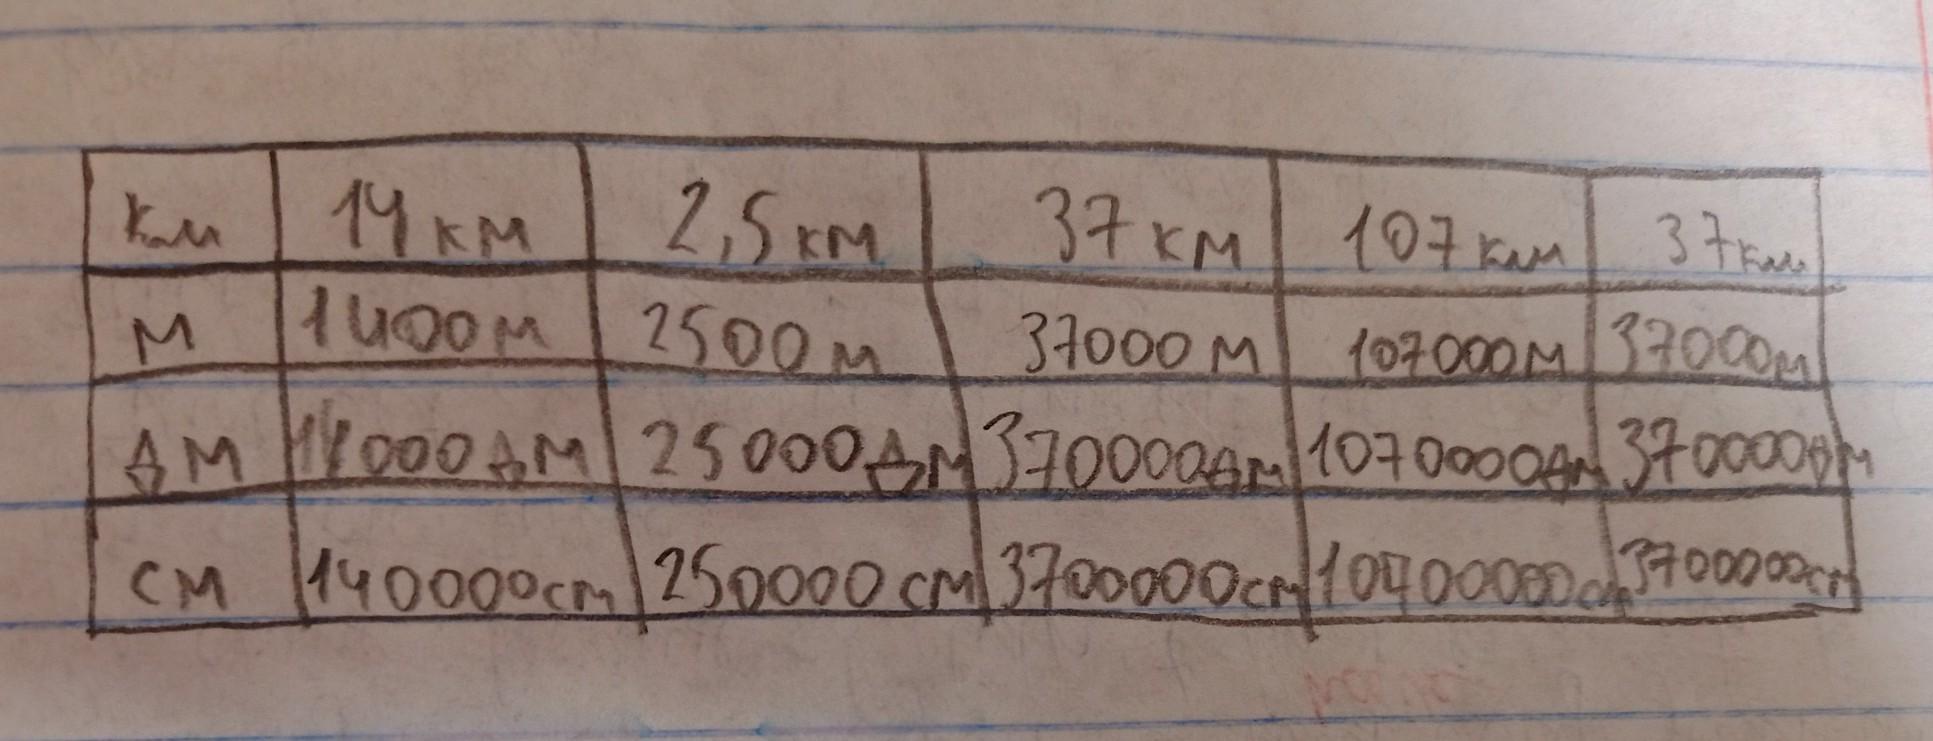 км 14 км 2,5 км 37 км 107 км 37 км
м 1400м 2500 м 37000 м 107000м 37000м
дм 14000дм 25000дм 370000дм 1070000дм 370000дм
см 140000cm 250000 см 3700000cm 10700000см 3700000cm